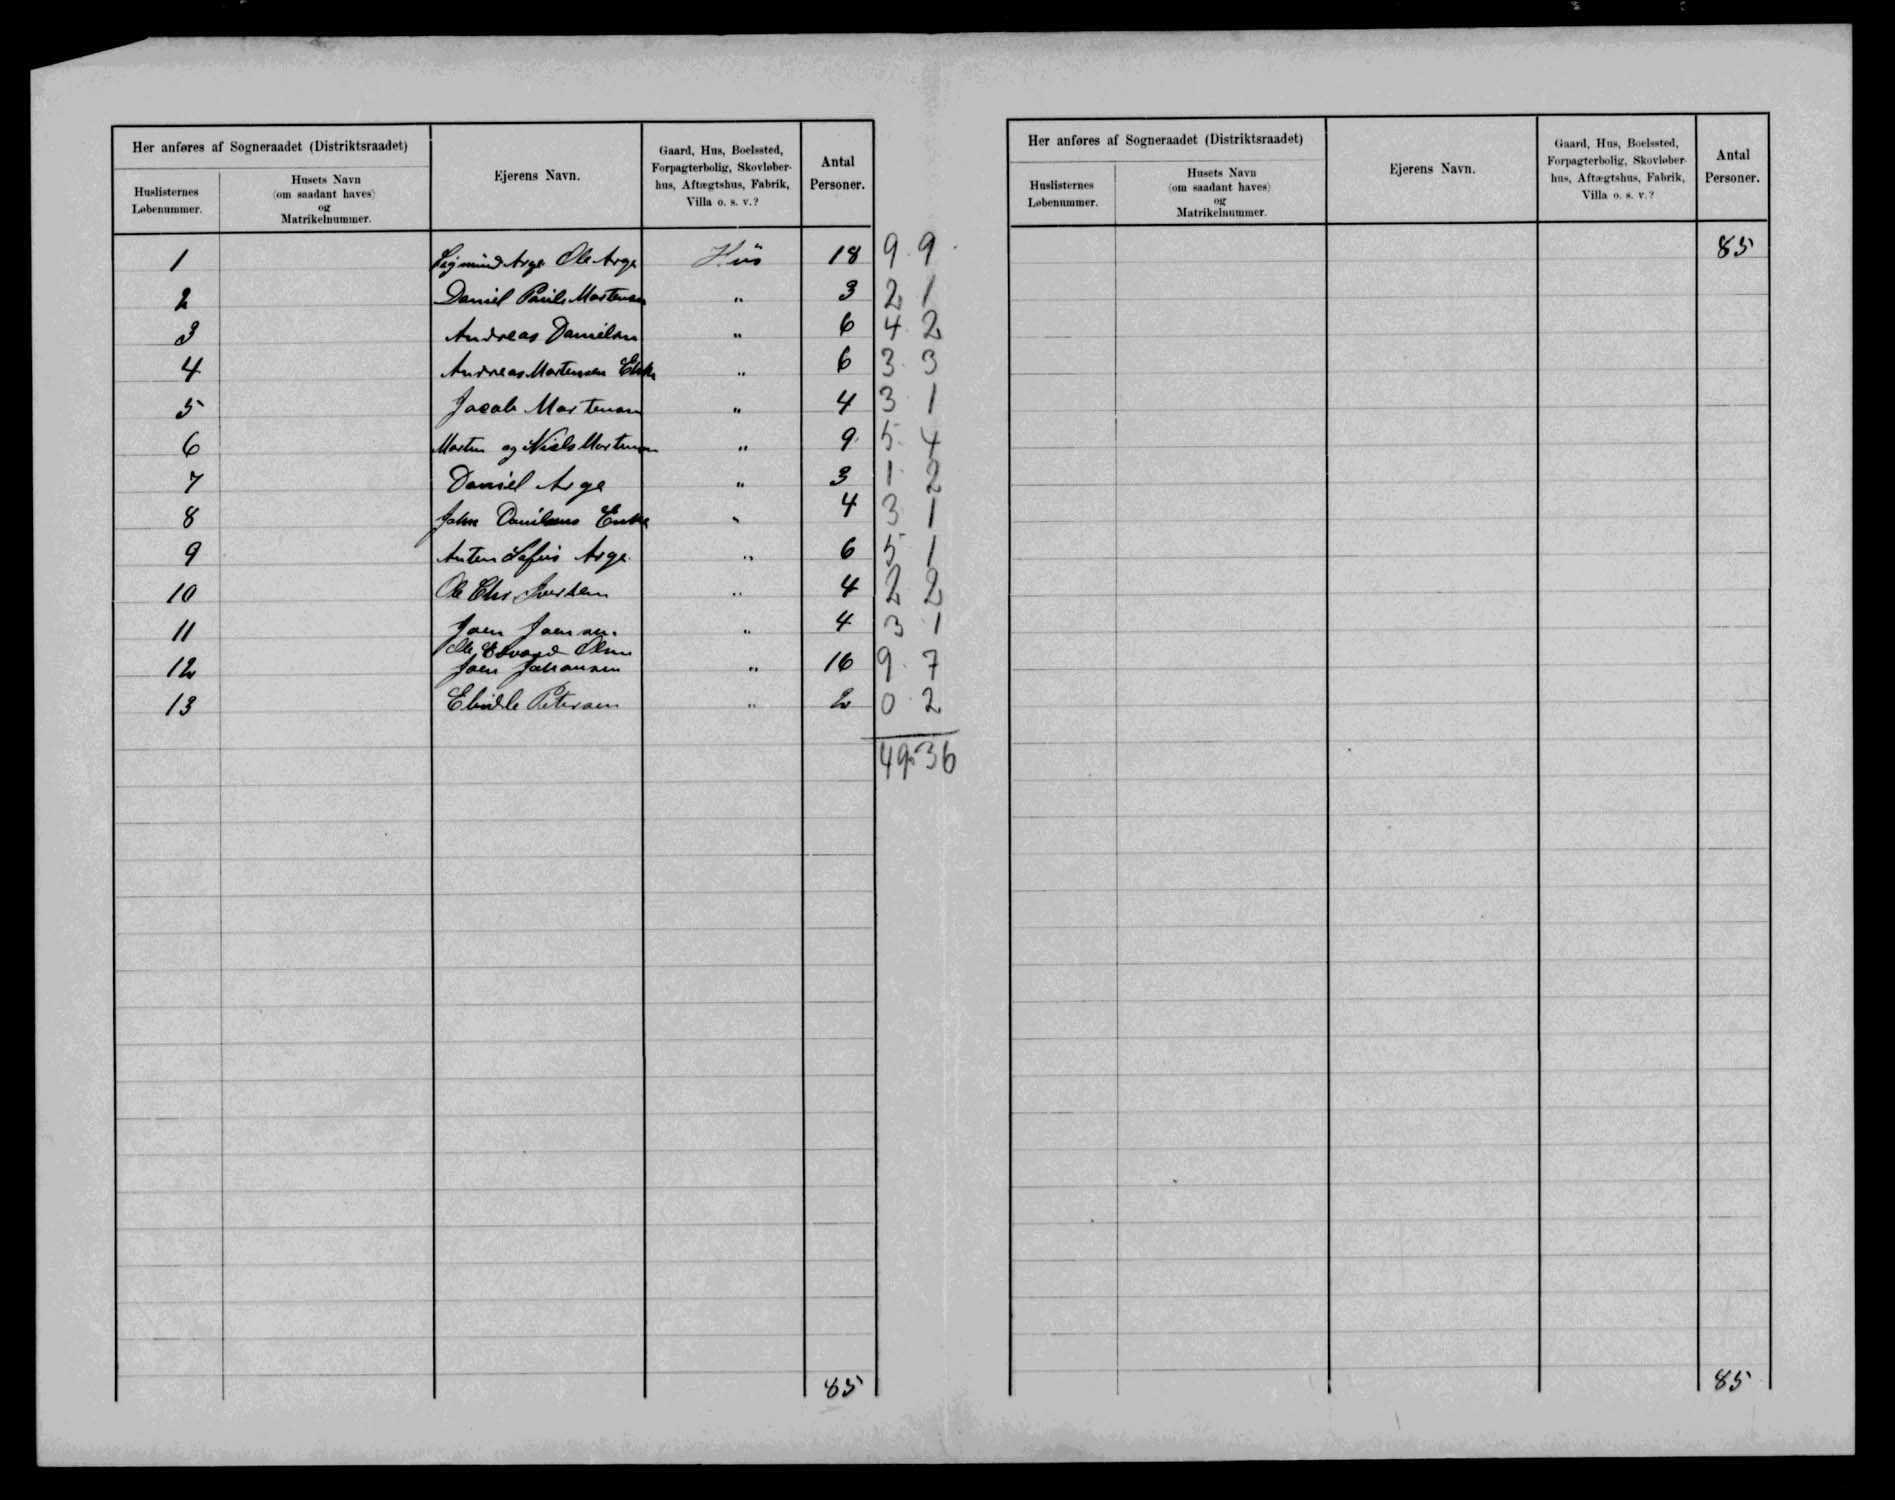 Her anføres af Sogneraadet (Distriktsraadet)
Huslisternes Løbenummer.
Husets Navn
(om saadant haves)
og
Matrikelnummer.
Ejerens Navn.
Gaard, Hus, Boelssted,
Forpagterbolig, Skovløber-
hus, Aftægtshus, Fabrik,
Villa o. s. v.?
Antal
Personer.
1 Sigmund Arge Ole Arge Hus 18 9 9
2 Daniel Pauli Mortensen " 3 2 1
3 Andreas Danielsen " 6 4 2
4 Andreas Mortensen Enke " 6 3 3
5 Jacob Mortensen " 4 3 1
6 Morten og Niels Mortensen " 9 5 4
7 Daniel Arge " 3 1 2
8 John Danielsens Enke " 4 3 1
9 Anton Sofus Arge " 6 5 1
10 Ole Chr. " 4 2 2
11 Joen Joensen " 4 3 1
Ole Edvard Olsen
12 Joen Johansen " 16 9 7
13 Petersen " 2 0 2
49 36
85
Her anføres af Sogneraadet (Distriktsraadet)
Huslisternes Løbenummer.
Husets Navn
(om saadant haves)
og
Matrikelnummer.
Ejerens Navn.
Gaard, Hus, Boelssted,
Forpagterbolig, Skovløber-
hus, Aftægtshus, Fabrik,
Villa o. s. v.?
Antal
Personer.
85
85